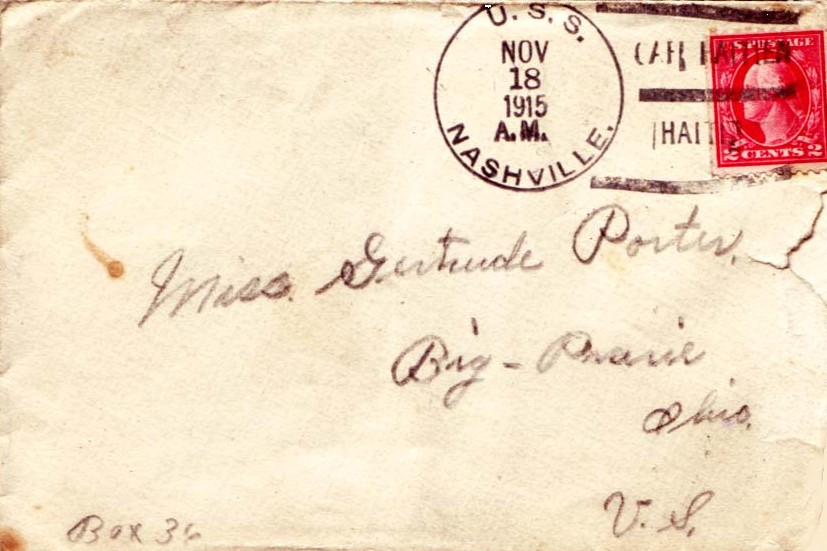 U.S.S.
NASHVILLE.
NOV
18
1915
A.M.
CAPE HAITIEN
HAITI
U.S. POSTAGE
2 CENTS 2
Miss. Gertrude Porter.
Big-Prairie
Ohio.
U.S.
Box 36